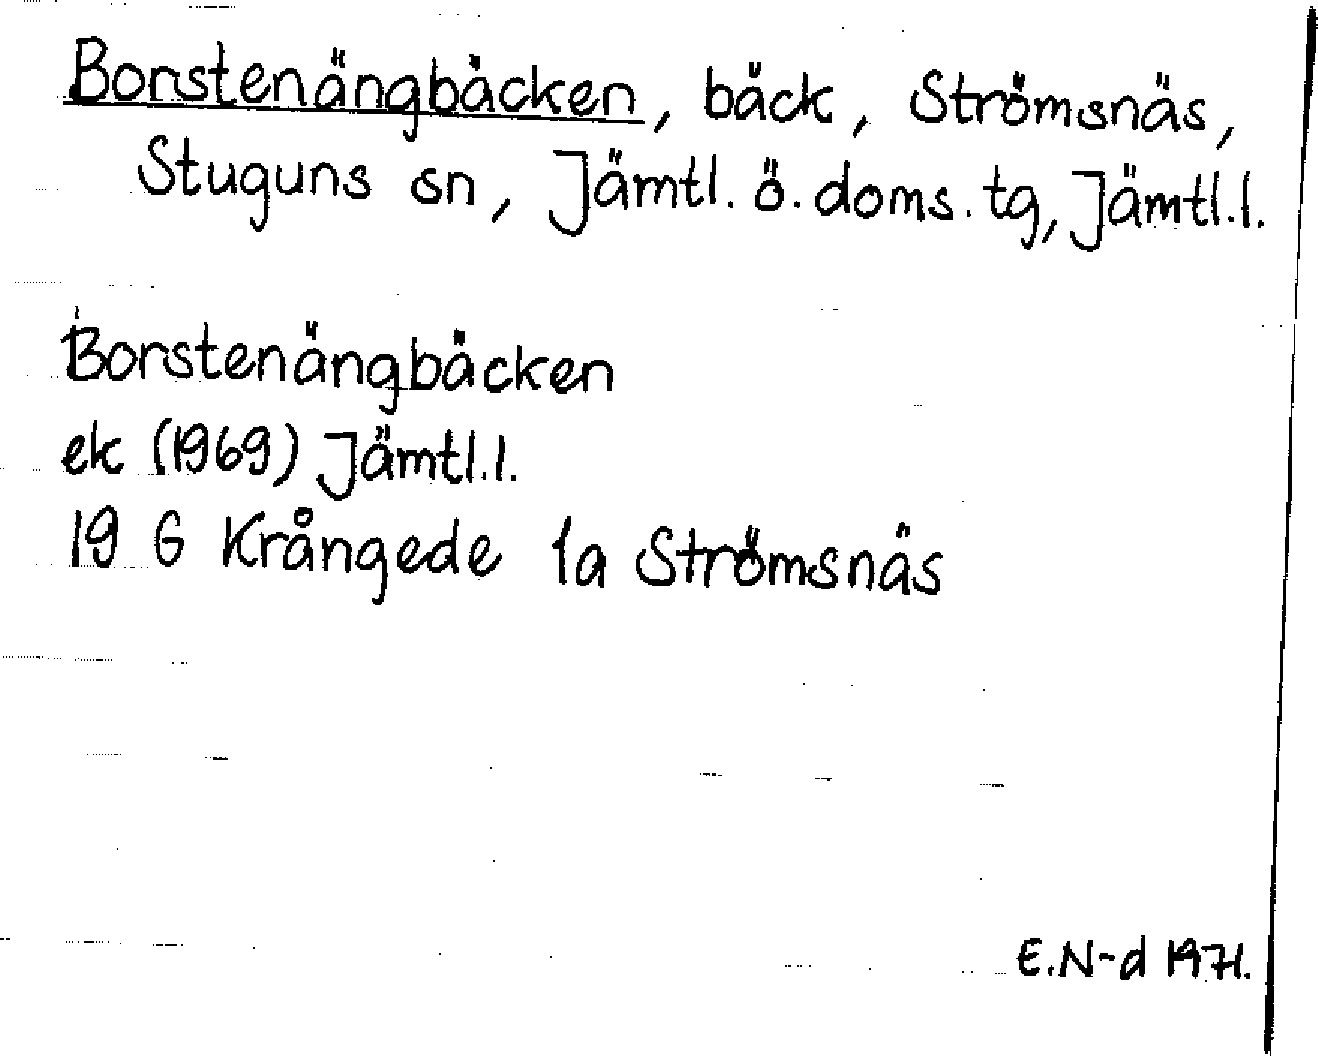 Borstenängbäcken, bäck, Strömsnäs,
Stuguns sn, Jämtl. ö. doms. tg, Jämtl.l.
Borstenängbäcken
ek (1969) Jämtl.l.
19 G Krångede 1a Strömsnäs
E.N-d 1971.